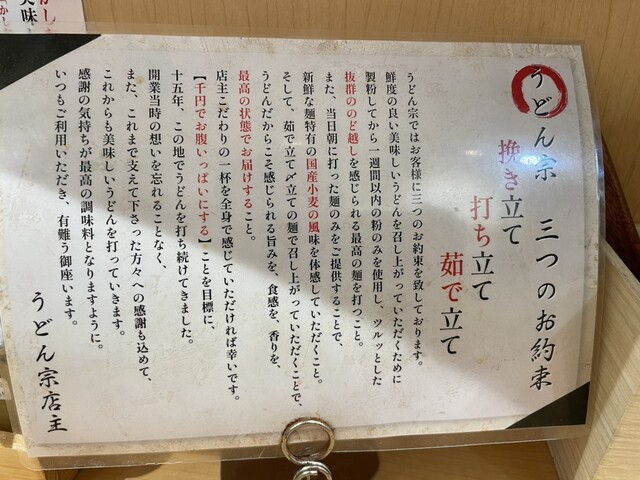 うどん宗 三つのお約束
挽き立て
打ち立て
茹で立て
うどん宗ではお客様に三つのお約束を致しております。
鮮度の良い美味しいうどんを召し上がっていただくために
製粉してから一週間以内の粉のみを使用し、ツルッとした
抜群ののど越しを感じられる最高の麺を打つこと。
また、当日朝に打った麺のみをご提供することで、
新鮮な麺特有の国産小麦の風味を体感していただくこと。
そして、茹で立て〆立ての麺で召し上がっていただくことで、
うどんだからこそ感じられる旨みを、食感を、香りを、
最高の状態でお届けすること。
店主こだわりの一杯を全身で感じていただければ幸いです。
【千円でお腹いっぱいにする】ことを目標に、
十五年、この地でうどんを打ち続けてきました。
開業当時の想いを忘れることなく、
また、これまで支えて下さった方々への感謝も込めて、
これからも美味しいうどんを打っていきます。
感謝の気持ちが最高の調味料となりますように。
いつもご利用いただき、有難う御座います。
うどん宗店主